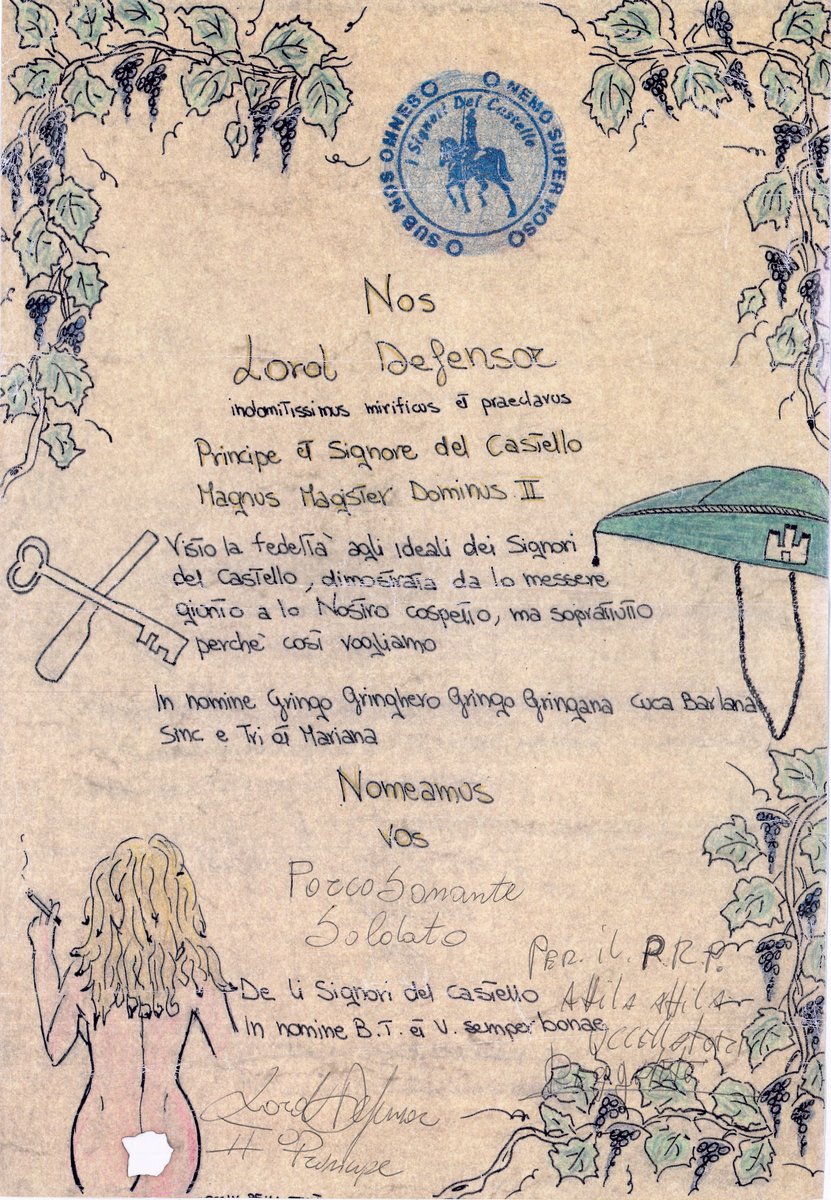 SUB NOS OMNES O O NEMO SUPER NOS O
I Signori Del Castello
Nos
Lord Defensor
indomitissimus mirificus et praeclarus
Principe et Signore del Castello
Magnus Magister Dominus II
Visto la fedeltà agli ideali dei Signori
del Castello, dimostrata da lo messere
giunto a lo Nostro cospetto, ma soprattutto
perchè così vogliamo
In nomine Gringo Gringhero Gringo Gringana Cuca Barlana
Smc e Tri et Mariana
Nomeamus
vos
Porco Sonante
Soldato
Per il P.R.P.
Attila Attila
De li Signori del Castello
In nomine B.T. et V. semper bonae
Lord Defensor
II° Principe